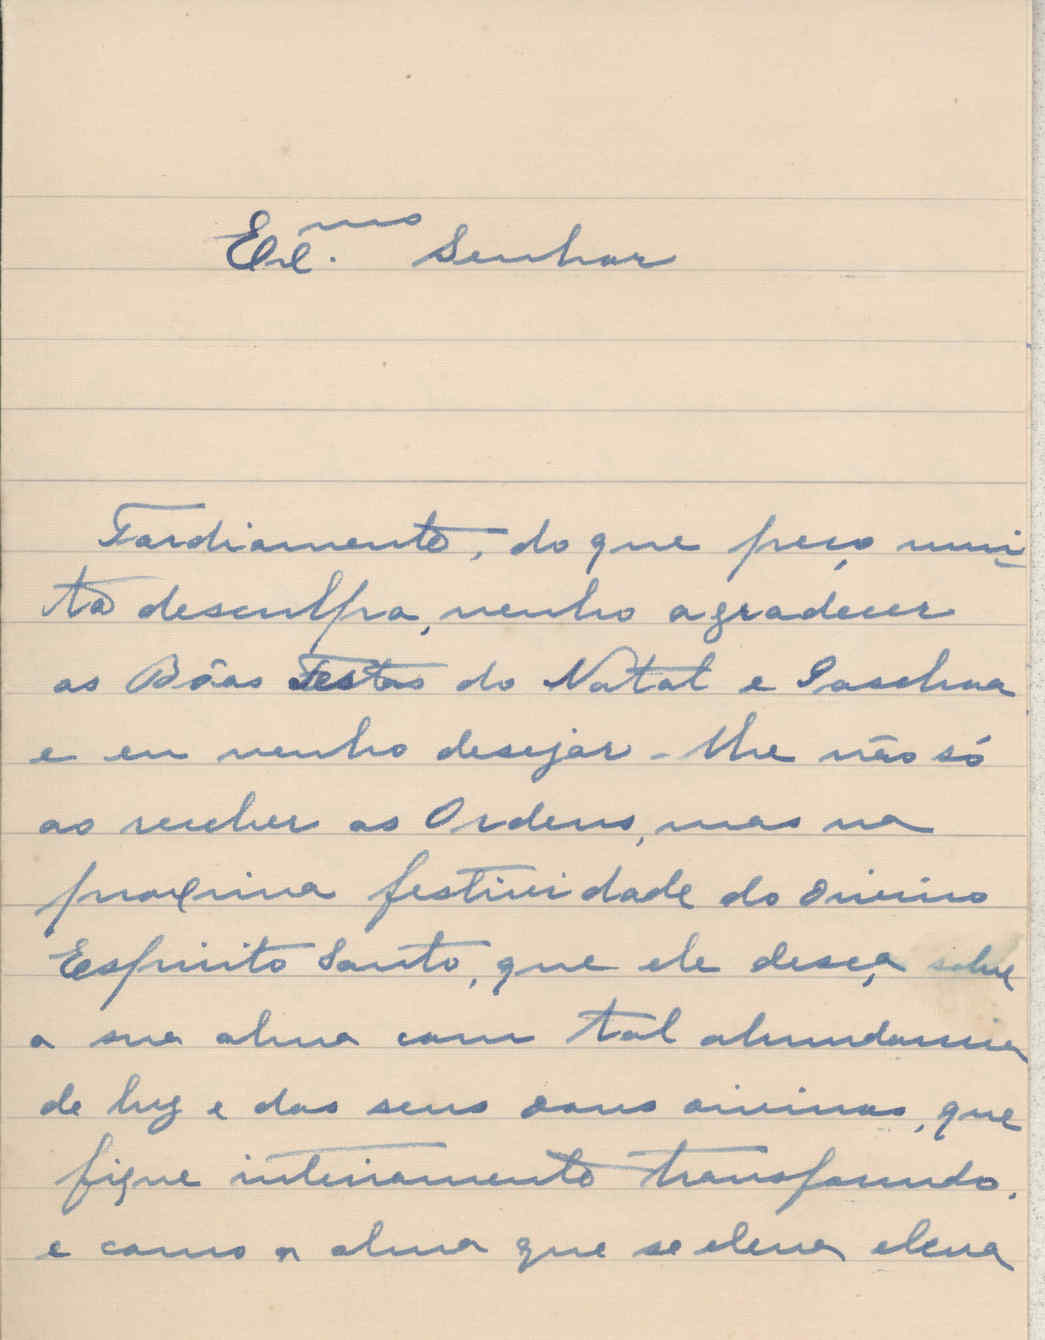 Ex.mo Senhor
Tardiamente, do que peço mui-
ta desculpa, venho agradecer
as Bôas Festas do Natal e Paschoa
e eu venho desejar-lhe não só
ao receber as Ordens, mas na
proxima festividade do Divino
Espirito Santo, que ele desça sobre
a sua alma com tal abundancia
de luz e dos seus dons divinos, que
fique inteiramente transformado.
e como a alma que se eleva eleva